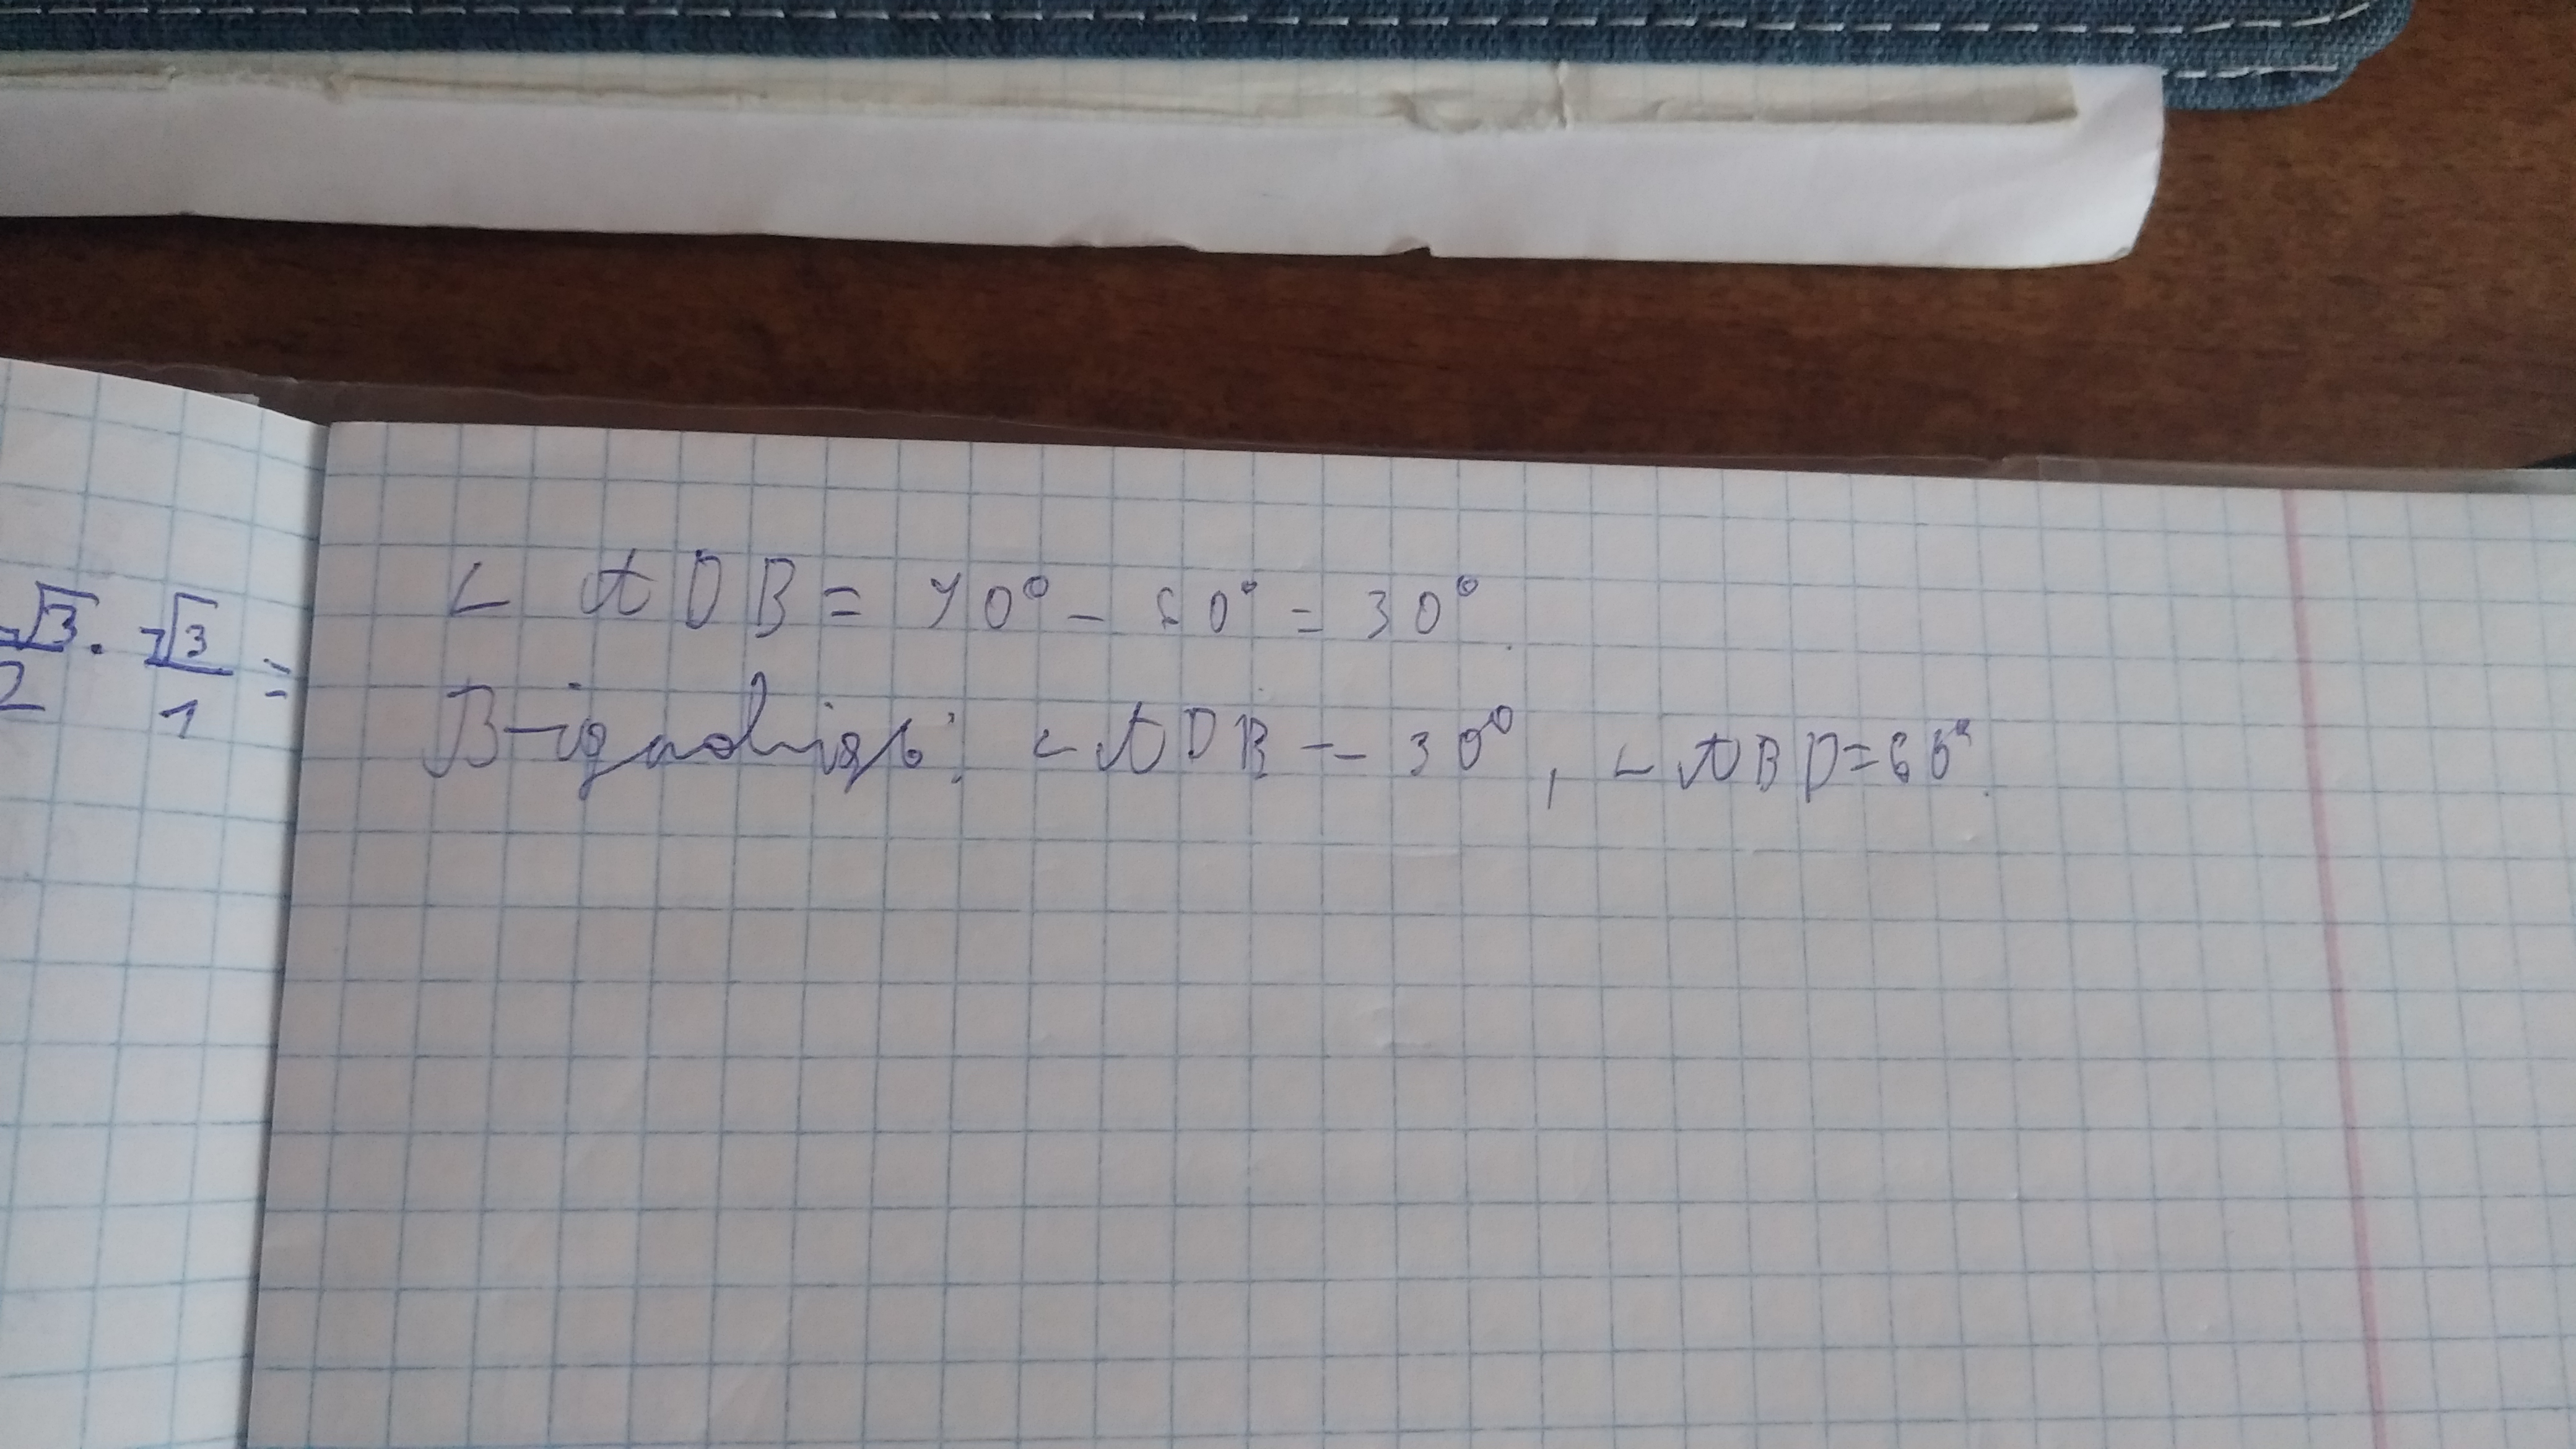 √3/2 · √3/1 =
∠ ADB = 90° - 60° = 30°.
В-ідповідь: ∠ ADB = 30°, ∠ ABD = 60°.